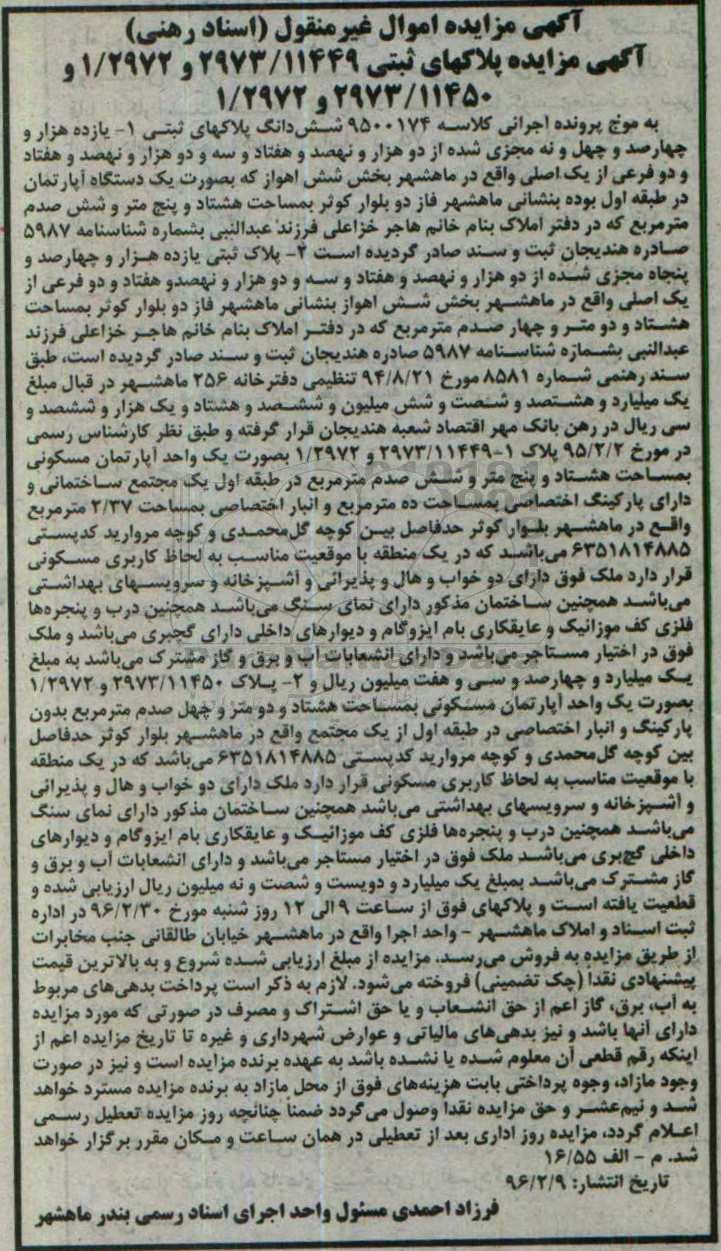 آگهی مزایده اموال غیرمنقول (اسناد رهنی)
آگهی مزایده پلاکهای ثبتی ۲۹۷۳/۱۱۴۴۹ و ۱/۲۹۷۲ و
۲۹۷۳/۱۱۴۵۰ و ۱/۲۹۷۲
به موجب پرونده اجرائی کلاسه ۹۵۰۰۱۷۴ شش‌دانگ پلاکهای ثبتی ۱- یازده هزار و
چهارصد و چهل و نه مجزی شده از دو هزار و نهصد و هفتاد و سه و دو هزار و نهصد و هفتاد
و دو فرعی از یک اصلی واقع در ماهشهر بخش شش اهواز که بصورت یک دستگاه آپارتمان
در طبقه اول بوده بنشانی ماهشهر فاز دو بلوار کوثر بمساحت هشتاد و پنج متر و شش صدم
مترمربع که در دفتر املاک بنام خانم هاجر خزاعلی فرزند عبدالنبی بشماره شناسنامه ۵۹۸۷
صادره هندیجان ثبت و سند صادر گردیده است ۲- پلاک ثبتی یازده هزار و چهارصد و
پنجاه مجزی شده از دو هزار و نهصد و هفتاد و سه و دو هزار و نهصدو هفتاد و دو فرعی از
یک اصلی واقع در ماهشهر بخش شش اهواز بنشانی ماهشهر فاز دو بلوار کوثر بمساحت
هشتاد و دو متر و چهار صدم مترمربع که در دفتر املاک بنام خانم هاجر خزاعلی فرزند
عبدالنبی بشماره شناسنامه ۵۹۸۷ صادره هندیجان ثبت و سند صادر گردیده است، طبق
سند رهنی شماره ۸۵۸۱ مورخ ۹۴/۸/۲۱ تنظیمی دفترخانه ۲۵۶ ماهشهر در قبال مبلغ
یک میلیارد و هشتصد و شصت و شش میلیون و ششصد و هشتاد و یک هزار و ششصد و
سی ریال در رهن بانک مهر اقتصاد شعبه هندیجان قرار گرفته و طبق نظر کارشناس رسمی
در مورخ ۹۵/۲/۲ پلاک ۱-۲۹۷۳/۱۱۴۴۹ و ۱/۲۹۷۲ بصورت یک واحد آپارتمان مسکونی
بمساحت هشتاد و پنج متر و شش صدم مترمربع در طبقه اول یک مجتمع ساختمانی و
دارای پارکینگ اختصاصی بمساحت ده مترمربع و انبار اختصاصی بمساحت ۲/۳۷ مترمربع
واقع در ماهشهر بلوار کوثر حدفاصل بین کوچه گل‌محمدی و کوچه مروارید کدپستی
۶۳۵۱۸۱۴۸۸۵ می‌باشد که در یک منطقه با موقعیت مناسب به لحاظ کاربری مسکونی
قرار دارد ملک فوق دارای دو خواب و هال و پذیرائی و آشپزخانه و سرویسهای بهداشتی
می‌باشد همچنین ساختمان مذکور دارای نمای سنگ می‌باشد همچنین درب و پنجره‌ها
فلزی کف موزائیک و عایقکاری بام ایزوگام و دیوارهای داخلی دارای گچبری می‌باشد و ملک
فوق در اختیار مستاجر می‌باشد و دارای انشعابات آب و برق و گاز مشترک می‌باشد به مبلغ
یک میلیارد و چهارصد و سی و هفت میلیون ریال و ۲- پلاک ۲۹۷۳/۱۱۴۵۰ و ۱/۲۹۷۲
بصورت یک واحد آپارتمان مسکونی بمساحت هشتاد و دو متر و چهل صدم مترمربع بدون
پارکینگ و انبار اختصاصی در طبقه اول از یک مجتمع واقع در ماهشهر بلوار کوثر حدفاصل
بین کوچه گل‌محمدی و کوچه مروارید کدپستی ۶۳۵۱۸۱۴۸۸۵ می‌باشد که در یک منطقه
با موقعیت مناسب به لحاظ کاربری مسکونی قرار دارد ملک دارای دو خواب و هال و پذیرائی
و آشپزخانه و سرویسهای بهداشتی می‌باشد همچنین ساختمان مذکور دارای نمای سنگ
می‌باشد همچنین درب و پنجره‌ها فلزی کف موزائیک و عایقکاری بام ایزوگام و دیوارهای
داخلی گچ‌بری می‌باشد ملک فوق در اختیار مستاجر می‌باشد و دارای انشعابات آب و برق و
گاز مشترک می‌باشد بمبلغ یک میلیارد و دویست و شصت و نه میلیون ریال ارزیابی شده و
قطعیت یافته است و پلاکهای فوق از ساعت ۹ الی ۱۲ روز شنبه مورخ ۹۶/۲/۳۰ در اداره
ثبت اسناد و املاک ماهشهر - واحد اجرا واقع در ماهشهر خیابان طالقانی جنب مخابرات
از طریق مزایده به فروش می‌رسد. مزایده از مبلغ ارزیابی شده شروع و به بالاترین قیمت
پیشنهادی نقدا (چک تضمینی) فروخته می‌شود. لازم به ذکر است پرداخت بدهی‌های مربوط
به آب، برق، گاز اعم از حق انشعاب و یا حق اشتراک و مصرف در صورتی که مورد مزایده
دارای آنها باشد و نیز بدهی‌های مالیاتی و عوارض شهرداری و غیره تا تاریخ مزایده اعم از
اینکه رقم قطعی آن معلوم شده یا نشده باشد به عهده برنده مزایده است و نیز در صورت
وجود مازاد، وجوه پرداختی بابت هزینه‌های فوق از محل مازاد به برنده مزایده مسترد خواهد
شد و نیم‌عشر و حق مزایده نقدا وصول می‌گردد ضمناً چنانچه روز مزایده تعطیل رسمی
اعلام گردد، مزایده روز اداری بعد از تعطیلی در همان ساعت و مکان مقرر برگزار خواهد
شد. م - الف ۱۶/۵۵
تاریخ انتشار: ۹۶/۲/۹
فرزاد احمدی مسئول واحد اجرای اسناد رسمی بندر ماهشهر